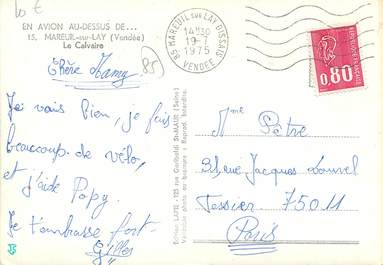 10 €
EN AVION AU-DESSUS DE...
15. MAREUIL-sur-LAY (Vendée)
Le Calvaire
85
Chère Mamy
Je vais bien, je fais
beaucoup de vélo,
et j'aide Papy.
Je t'embrasse fort-
Gilles
Editeur LAPIE - 125 rue Garibaldi St-MAUR (Seine)
Véritable photo au bromure - Reprod. Interdite.
85 MAREUIL sur LAY DISSAIS
14H30
19-7
1975
VENDÉE
0.80
Mme Pètre
rue Jacques Louvel
Tessier 75011
Paris